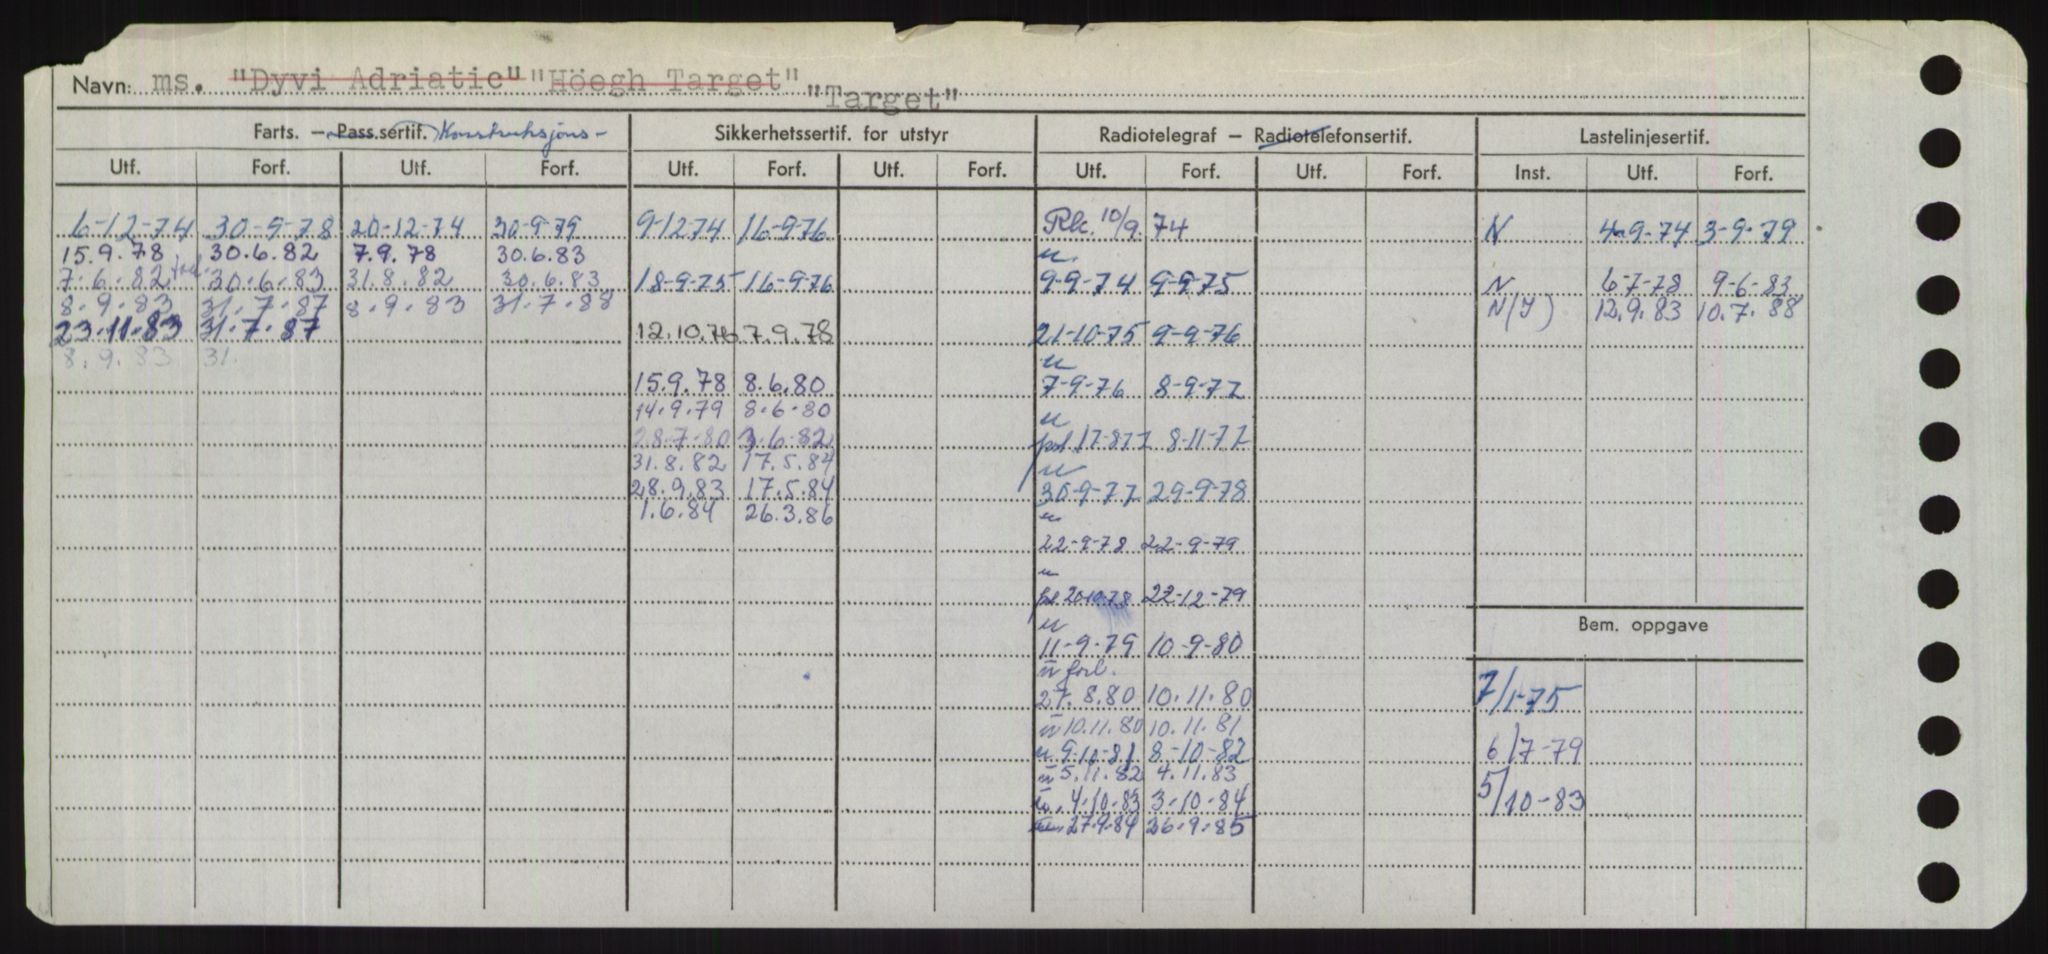 Navn: ms. "Dyvi Adriatic" "Höegh Target" "Target"
Farts. — Pass.sertif. Konstruksjons- Sikkerhetssertif. for utstyr Radiotelegraf — Radiotelefonsertif. Lastelinjesertif.
Utf. Forf. Utf. Forf. Utf. Forf. Utf. Forf. Utf. Forf. Utf. Forf. Inst. Utf. Forf.
6-12-74 30-9-78 20-12-74 30-9-79 9-1274 16-9-76 Rk. 10/9.74 N 4-9-74 3-9-79
15.9.78 30.6.82 7.9.78 30.6.83 u
7.6.82 30.6.83 31.8.82 30.6.83 18-9-75 16-9-76 9-9-74 9-9-75 N 6-7-78 9-6-83
8.9.83 31.7.87 8.9.83 31.7.88 N(Y) 12.9.83 10.7.88
23.11.83 31.7.87 12.10.76 7.9.78 21-10-75 9-9-76
8.9.83 31. u
15.9.78 8.6.80 7-9-76 8-9-77
14.9.79 8.6.80 u
28.7.80 3.6.82 17-8-77 8-11-77
31.8.82 17.5.84 u
28.9.83 17.5.84 30-9-77 29-9-78
1.6.84 26.3.86 u
22-9-78 22-9-79
u
20-10-78 22-12-79
u Bem. oppgave
11-9-79 10-9-80
u forl.
27.8.80 10.11.80 7/1-75
u 10.11.80 10.11.81
u 9-10-81 8-10-82 6/7-79
u 5.11.82 4.11.83
u. 4.10.83 3.10.84 5/10-83
27.9.84 26.9.85